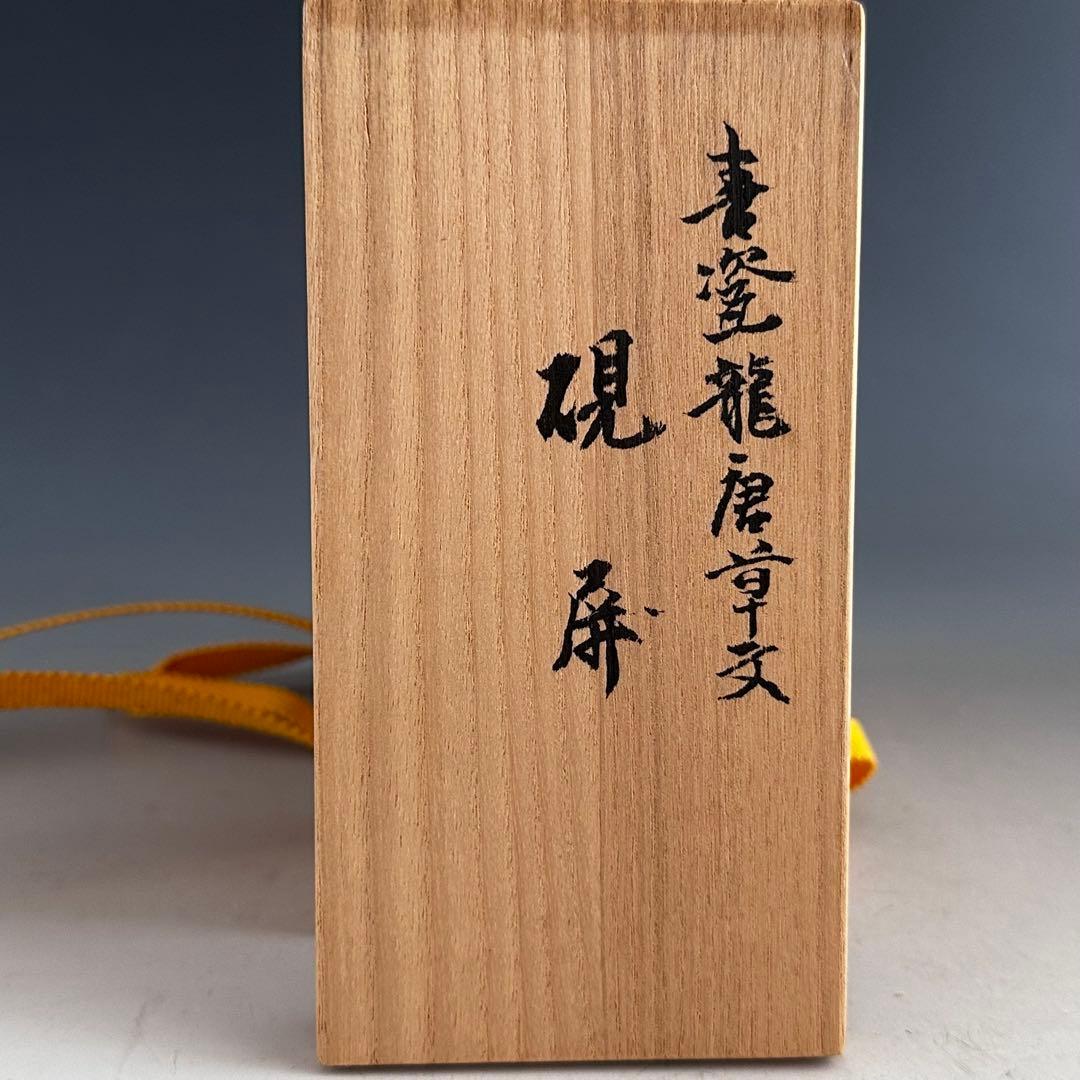 青瓷龍唐草文
硯屏